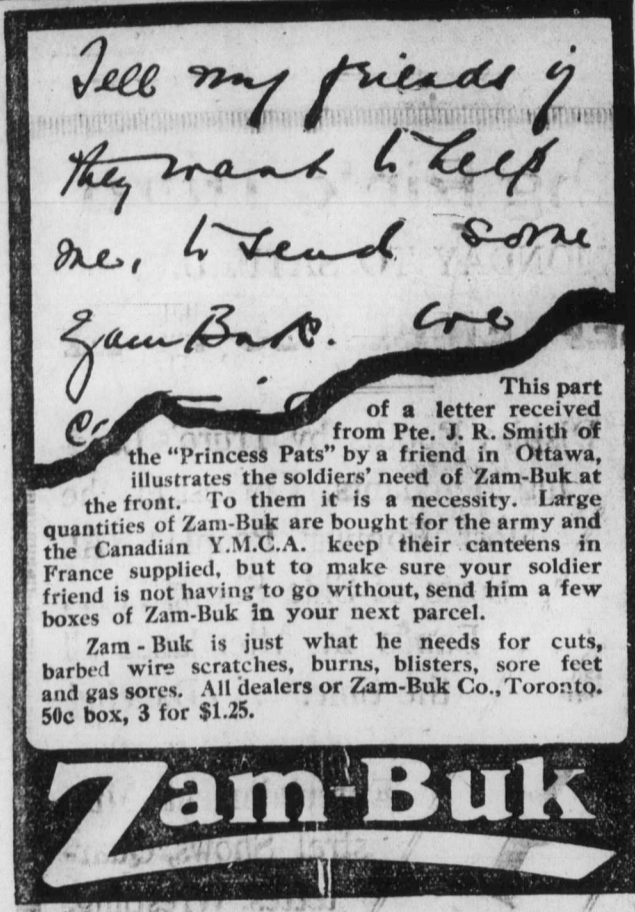 Tell my friends if
they want to help
me, to send some
Zam Buk. We
This part
of a letter received
from Pte. J. R. Smith of
the "Princess Pats" by a friend in Ottawa,
illustrates the soldiers' need of Zam-Buk at
the front. To them it is a necessity. Large
quantities of Zam-Buk are bought for the army and
the Canadian Y.M.C.A. keep their canteens in
France supplied, but to make sure your soldier
friend is not having to go without, send him a few
boxes of Zam-Buk in your next parcel.
Zam-Buk is just what he needs for cuts,
barbed wire scratches, burns, blisters, sore feet
and gas sores. All dealers or Zam-Buk Co., Toronto.
50c box, 3 for $1.25.
Zam-Buk